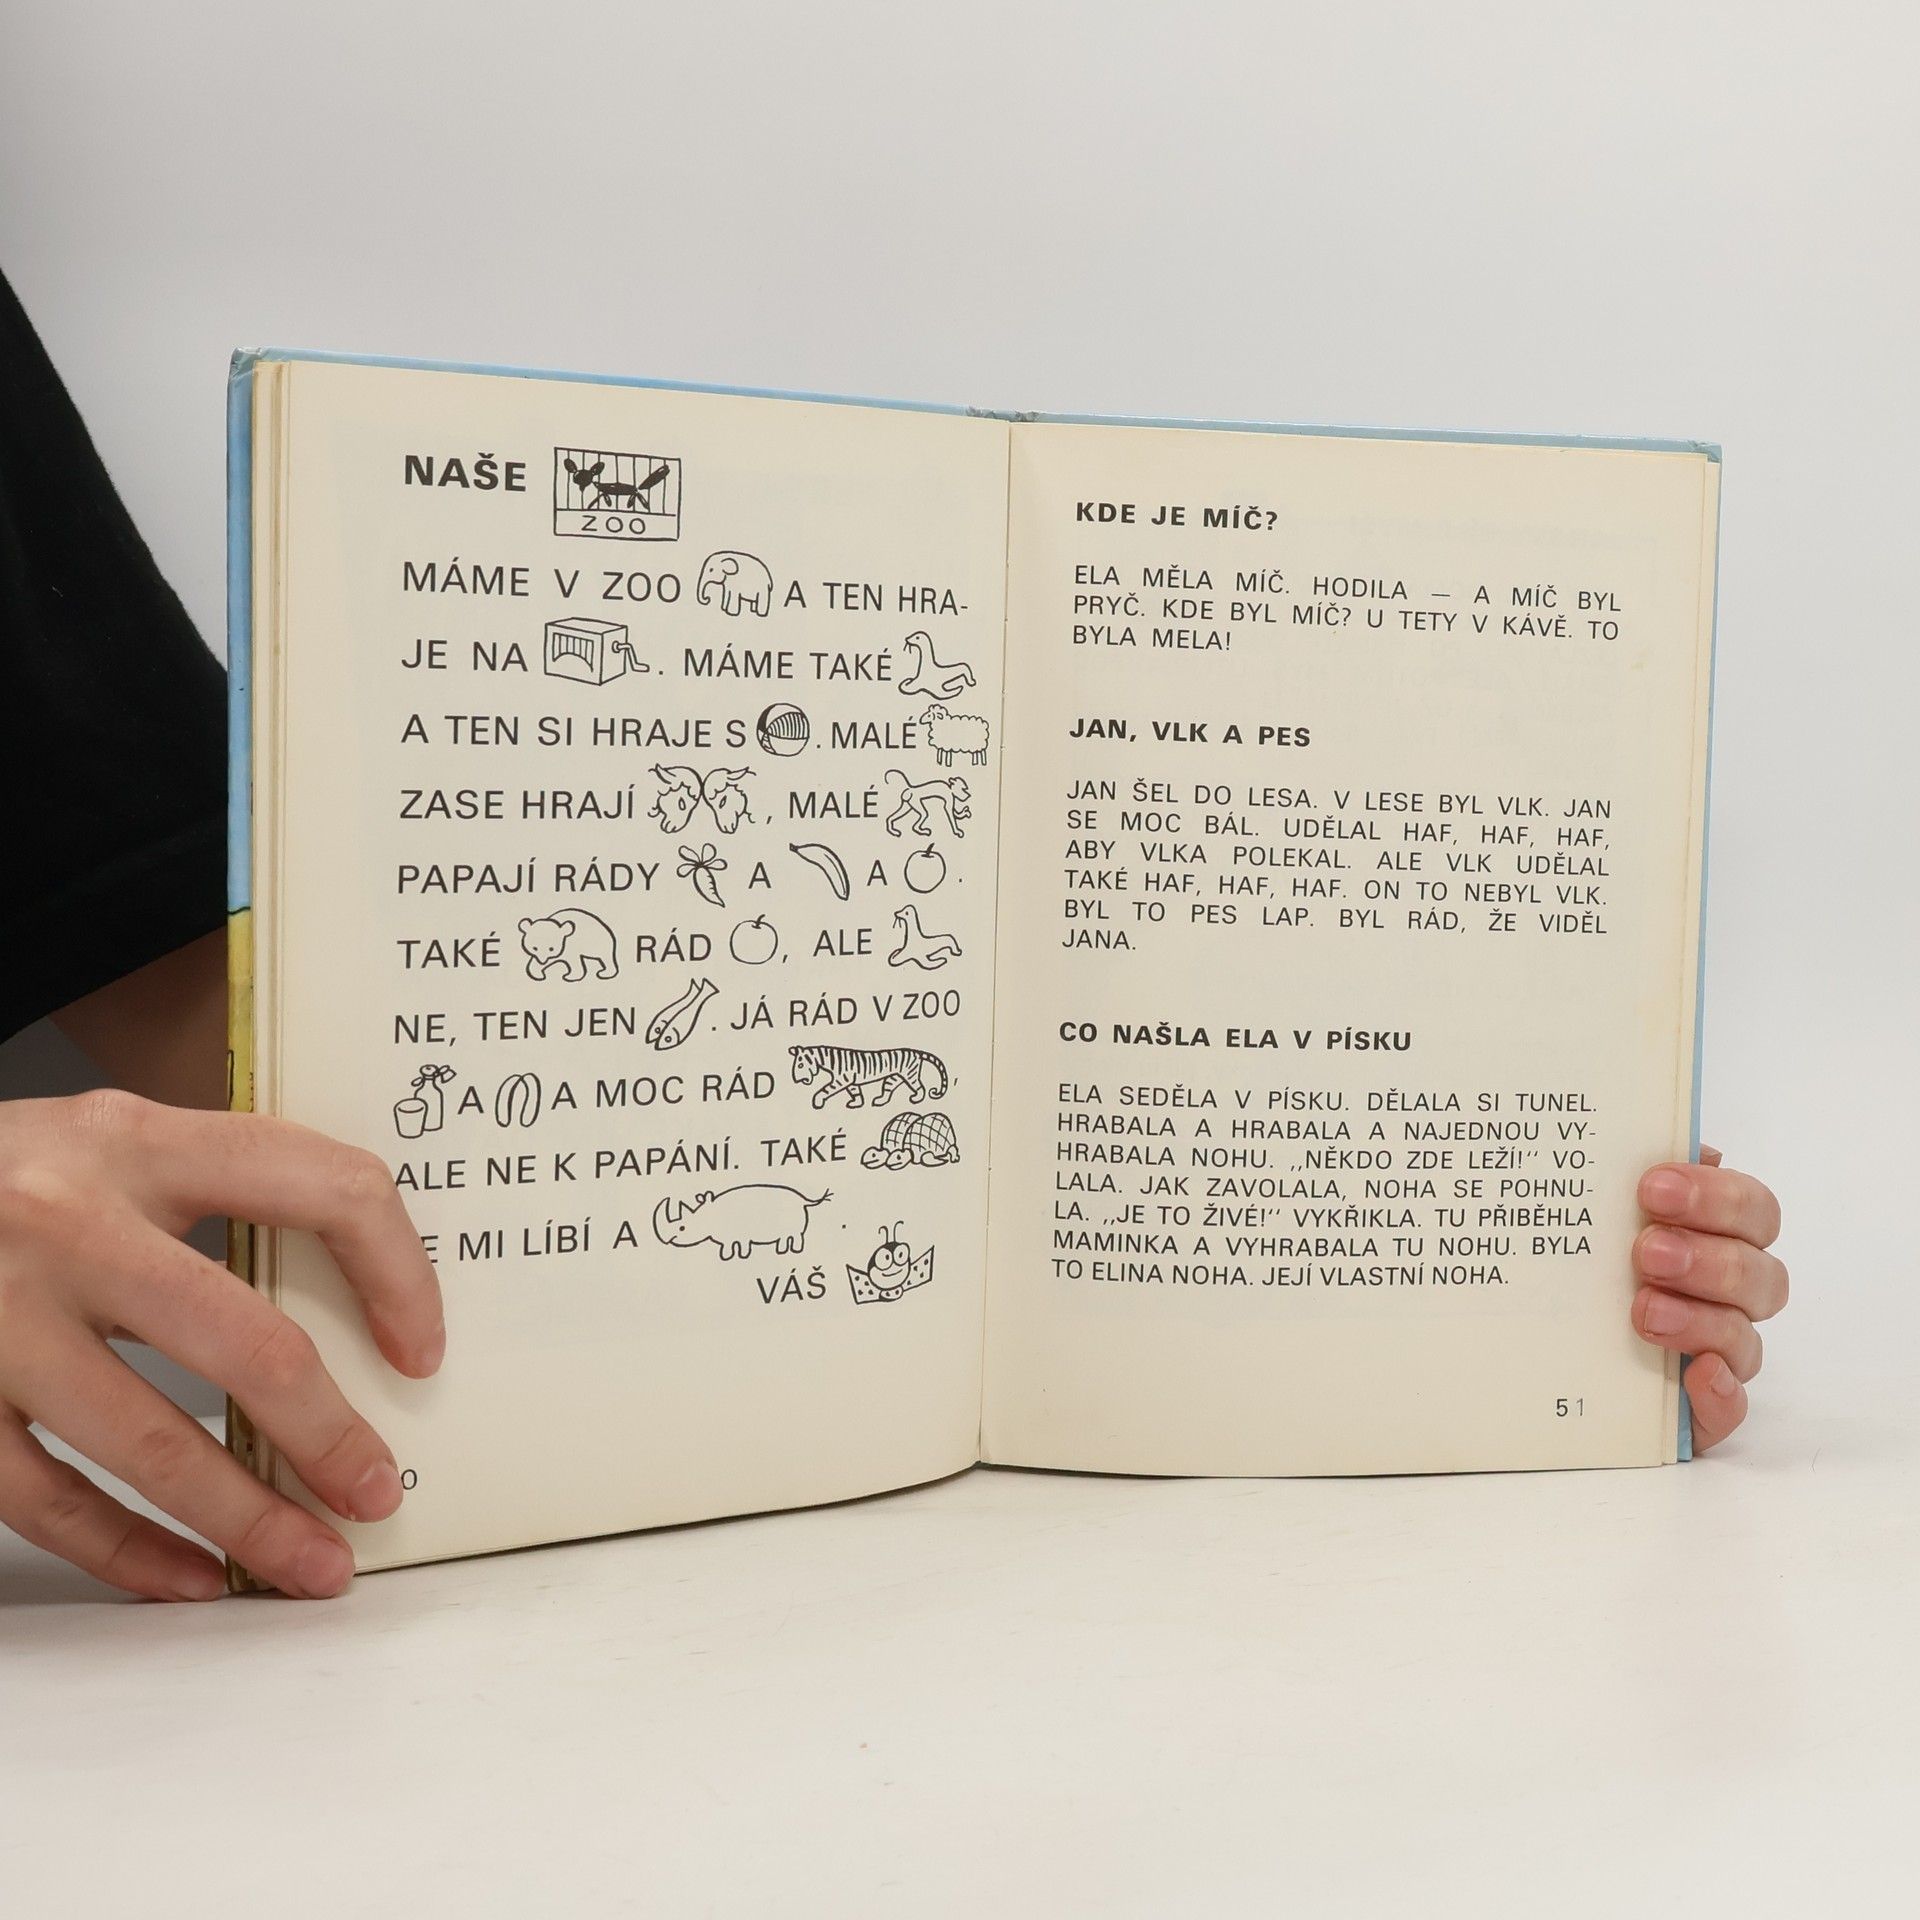 NAŠE
ZOO
MÁME V ZOO A TEN HRA-
JE NA . MÁME TAKÉ
A TEN SI HRAJE S . MALÉ
ZASE HRAJÍ , MALÉ
PAPAJÍ RÁDY A A .
TAKÉ RÁD , ALE
NE, TEN JEN . JÁ RÁD V ZOO
A A MOC RÁD ,
ALE NE K PAPÁNÍ. TAKÉ
MI LÍBÍ A .
VÁŠ
KDE JE MÍČ?
ELA MĚLA MÍČ. HODILA — A MÍČ BYL
PRYČ. KDE BYL MÍČ? U TETY V KÁVĚ. TO
BYLA MELA!
JAN, VLK A PES
JAN ŠEL DO LESA. V LESE BYL VLK. JAN
SE MOC BÁL. UDĚLAL HAF, HAF, HAF,
ABY VLKA POLEKAL. ALE VLK UDĚLAL
TAKÉ HAF, HAF, HAF. ON TO NEBYL VLK.
BYL TO PES LAP. BYL RÁD, ŽE VIDĚL
JANA.
CO NAŠLA ELA V PÍSKU
ELA SEDĚLA V PÍSKU. DĚLALA SI TUNEL.
HRABALA A HRABALA A NAJEDNOU VY-
HRABALA NOHU. „NĚKDO ZDE LEŽÍ!“ VO-
LALA. JAK ZAVOLALA, NOHA SE POHNU-
LA. „JE TO ŽIVÉ!“ VYKŘIKLA. TU PŘIBĚHLA
MAMINKA A VYHRABALA TU NOHU. BYLA
TO ELINA NOHA. JEJÍ VLASTNÍ NOHA.
51